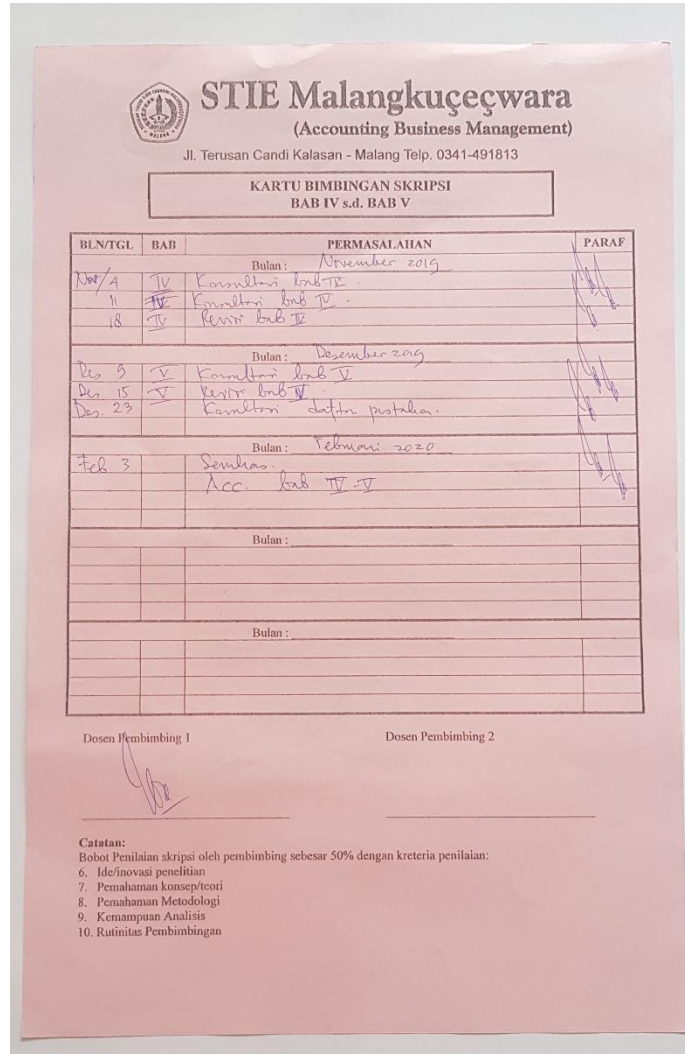 STIE Malangkuçeçwara
(Accounting Business Management)
Jl. Terusan Candi Kalasan - Malang Telp. 0341-491813
KARTU BIMBINGAN SKRIPSI
BAB IV s.d. BAB V
BLN/TGL BAB PERMASALAHAN PARAF
Bulan : November 2019
Nov/4 IV Konsultasi bab IV.
11 IV Konsultasi bab IV.
18 IV Revisi bab IV
Bulan : Desember 2019
Des 9 V Konsultasi bab V
Des 15 V Revisi bab V.
Des. 23 Konsultasi daftar pustaka.
Bulan : Februari 2020
Feb 3 Semhas.
Acc. bab IV-V
Bulan :
Bulan :
Dosen Pembimbing 1 Dosen Pembimbing 2
Catatan:
Bobot Penilaian skripsi oleh pembimbing sebesar 50% dengan kreteria penilaian:
6. Ide/inovasi penelitian
7. Pemahaman konsep/teori
8. Pemahaman Metodologi
9. Kemampuan Analisis
10. Rutinitas Pembimbingan